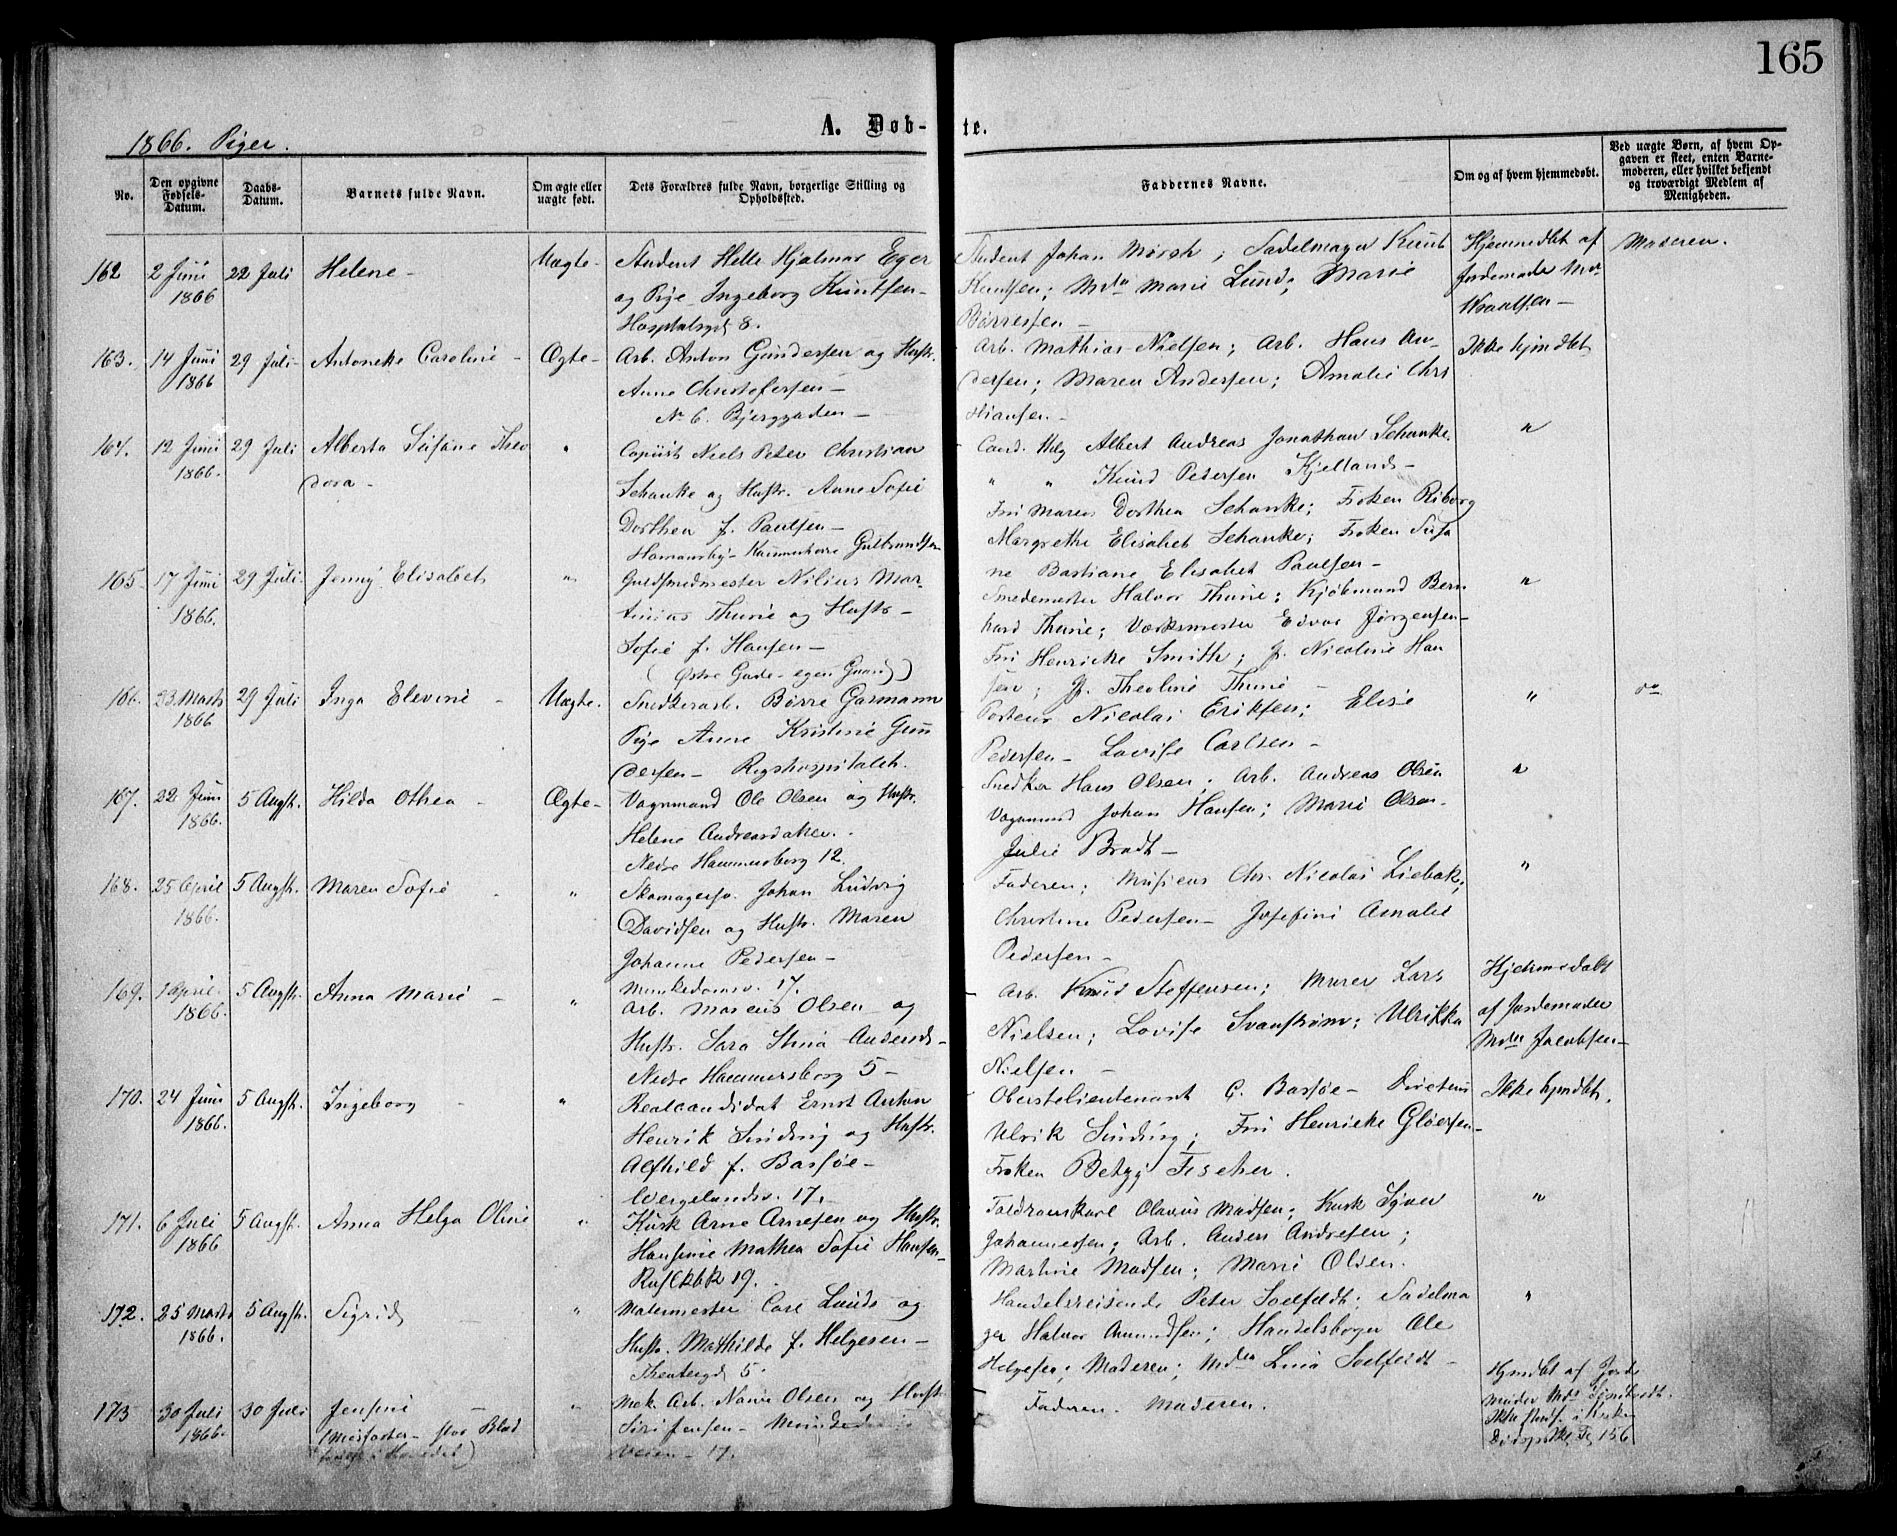 165
A. Døb- te.
1866. Piger.
No.
Den opgivne Fødsels-Datum.
Daabs-Datum.
Barnets fulde Navn.
Om ægte eller uægte født.
Dets Forældres fulde Navn, borgerlige Stilling og Opholdssted.
Faddernes Navne.
Om og af hvem hjemmedøbt.
Ved uægte Børn, af hvem Opgaven er skeet, enten Barnemoderen, eller hvilket bekjendt og troværdigt Medlem af Menigheden.
162 2 Juni 1866 22 Juli Helene - Uægte-
Student Helle Hjalmar Eger
og Pige Ingeborg Knutsen-
Hospitalsgd 8.
Student Johan Mørch; Sadelmager Knut
Knutsen; Mda Marie Lund; Marie
Børresen -
Hjemmedbt af
Jordemoder Md
Moderen.
163. 14 Juni 1866 29 Juli- Antoneke Caroline - Ægte-
Arb. Anton Gundersen og Hustr.
Anne Christofersen -
No 6. Bjerggaden -
Arb. Mathias Nielsen; Arb. Hans An-
dersen; Maren Andersen; Amalie Chri
stiansen. -
Ikke hjmdbt
164. 12 Juni 1866. 29 Juli Alberta Susane Theo
dora - "
Copiist Niels Peter Christian
Schanke og Hustr. Anne Sofie
Dorthea f. Paulsen -
Homansby - Gulbrandsen
Cand. Albert Andreas Jonathan Schanke.
" " Knud Pedersen Kjelland -
Fru Maren Dorthea Schanke; Frøken Riborg
Margrethe Elisabet Schanke; Frøken Susa
ne Bastiane Elisabet Paulsen -
"
165- 17 Juni 1866. 29 Juli. Jenny Elisabet "
Guldsmedmester Nilius Mar-
tinius Thune og Hustr -
Sofie f. Hansen -
(Østre Gade - egen Gaard)
Smedemester Halvor Thune; Kjøbmand Bern
hard Thune; Værksmester Edvar Jørgensen-
Fru Henricke Smith; J. Nicoline Han
sen; Jf. Theoline Thune -
"
166. 23 Marts 1866 29 Juli Inga Elevine - Uægte.
Snedkerarb. Børre Gasmann
Pige Anne Kristine Gun
dersen - Rigshospitalet.
Porteur Nicolai Eriksen; Elise
Pedersen - Lovise Carlsen -
" do
167. 22 Juni 1866. 5 Augst. Hilda Othea - Ægte-
Vognmand Ole Olsen og Hustr.
Helene Andreasdatter.
Nedre Hammersborg 12.
Snedker Hans Olsen; Arb. Andreas Olsen
Vognmand Johan Hansen; Marie Olsen.
Julie Bradt -
"
168. 25 April 1866. 5 Augst. Maren Sofie - "
Skomagersv. Johan Ludvig
Davidsen og Hustr. Maren
Johanne Pedersen -
Munkedamsv. 17.
Faderen; Musicus Chr. Nicolai Liebak;
Christine Pedersen - Josefine Amalie
Pedersen -
"
169. 1 April 1866. 5 Augst. Anna Marie - "
Arb. Marcus Olsen og
Hustr. Sara Stina Andersd. -
Nedre Hammersborg 5 -
Arb. Knud Steffensen; Murer Lars
Nielsen; Lovise Svanstrøm; Ulrikke
Nielsen -
Hjemmedøbt
af Jordemoder
Mda Jacobsen -
170. 24 Juni 1866. 5 Augst. Ingeborg - "
Realcandidat Ernst Anton
Henrik Sinding og Hustr.
Alfhild f. Bassøe -
Wergelandsv. 17.
Oberstelieutenant C. Bassøe - Directeur
Ulrik Sinding; Fru Henricke Gløersen -
Frøken Betzy Fischer.
Ikke hjmdbt.
171. 6 Juli 1866 5 Augst. Anna Helga Oline "
Kusk Arne Arnesen og Hustr.
Hansine Mathea Sofie Hansen -
Rusløkbk 19.
Olavus Madsen; Kusk Syver
Johannessen; Arb. Anders Andresen;
Martine Madsen; Marie Olsen.
"
172. 25 Marts 1866. 5 Augst. Sigrid "
Malermester Carl Lund og
Hustr. Mathilde f. Helgesen -
Theatergd 5.
Handelsreisende Peter Soelfeldt; Sadelma
ger Halvor Amundsen; Handelsborger Ole
Helgesen; Moderen; Mda Lina Soelfeldt -
"
173 30 Juli 1866. 30 Juli Jensine -
(Misfoster - stor Blod
i Hovedet) "
Mek. Arb. Nanne Olsen og Hustr.
Siri Jensen - Munkedams
veien - 17.
Faderen. Moderen.
Hjmdbt af Jorde
moder Md
Ikke i Kirken
Dødspr. No. 156